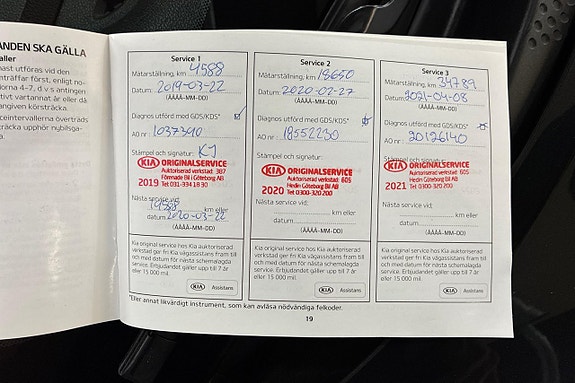 ANDEN SKA GÄLLA
aller
nast utföras vid den
nträffar först, enligt no-
lorna 4-7, d v s antingen
tivt vartannat år eller då
angiven körsträcka.
ceintervallerna överträds
ts upphör nybilsga-
Service 1
Mätarställning, km 4588
Datum: 2019-03-22
(ÅÅÅÅ-MM-DD)
Diagnos utförd med GDS/KDS*
AO nr: 1037340
Stämpel och signatur: KJ
KIA ORIGINALSERVICE
Auktoriserad verkstad: 307
Förenade Bil i Göteborg AB
2019 Tel: 031-334 18 30
Nästa service vid:
19588 km eller
datum 2020-03-22
(ÅÅÅÅ-MM-DD)
Kia original service hos Kia auktoriserad
verkstad ger fri Kia vägassistans fram till
och med datum för nästa schemalagda
service. Erbjudandet gäller upp till 7 år
eller 15 000 mil.
KIA Assistans
Service 2
Mätarställning, km 18650
Datum: 2020-02-27
(ÅÅÅÅ-MM-DD)
Diagnos utförd med GDS/KDS*
AO nr: 18552230
Stämpel och signatur:
KIA ORIGINALSERVICE
Auktoriserad verkstad: 605
Hedin Göteborg Bil AB
2020 Tel: 0300-320 200
Nästa service vid:
km eller
datum
(ÅÅÅÅ-MM-DD)
Kia original service hos Kia auktoriserad
verkstad ger fri Kia vägassistans fram till
och med datum för nästa schemalagda
service. Erbjudandet gäller upp till 7 år
eller 15 000 mil.
KIA Assistans
Service 3
Mätarställning, km 34789
Datum: 2021-04-08
(ÅÅÅÅ-MM-DD)
Diagnos utförd med GDS/KDS*
AO nr: 20126140
Stämpel och signatur:
KIA ORIGINALSERVICE
Auktoriserad verkstad: 605
Hedin Göteborg Bil AB
2021 Tel: 0300-320 200
Nästa service vid:
km eller
datum
(ÅÅÅÅ-MM-DD)
Kia original service hos Kia auktoriserad
verkstad ger fri Kia vägassistans fram till
och med datum för nästa schemalagda
service. Erbjudandet gäller upp till 7 år
eller 15 000 mil.
KIA Assistans
*Eller annat likvärdigt instrument, som kan avläsa nödvändiga felkoder.
19